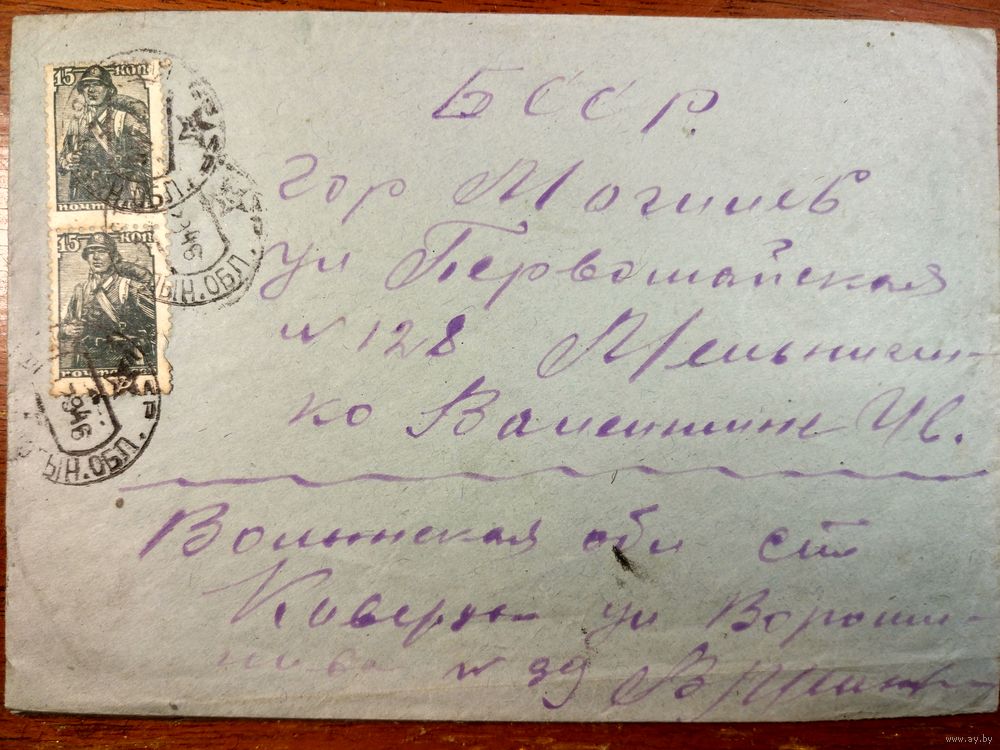 15 КОП
15 КОП
1946
ЫН.ОБЛ.
1946
ЫН.ОБЛ.
БССР.
гор Могилев
ул Первомайская
№ 128 Мельничен-
ко Валентине Ив.
Волынская обл ст
Киверцы ул Вороши-
лова № 39
www.ay.by